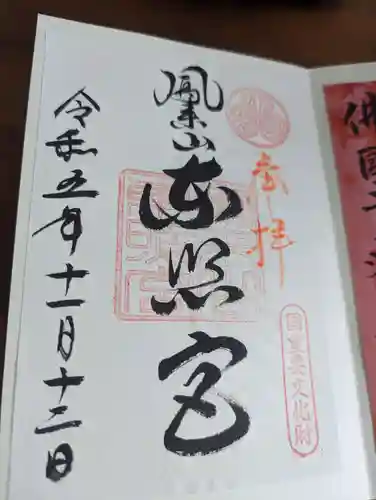 参拝
国重要文化財
鳳来山
東照宮
令和五年十一月十二日